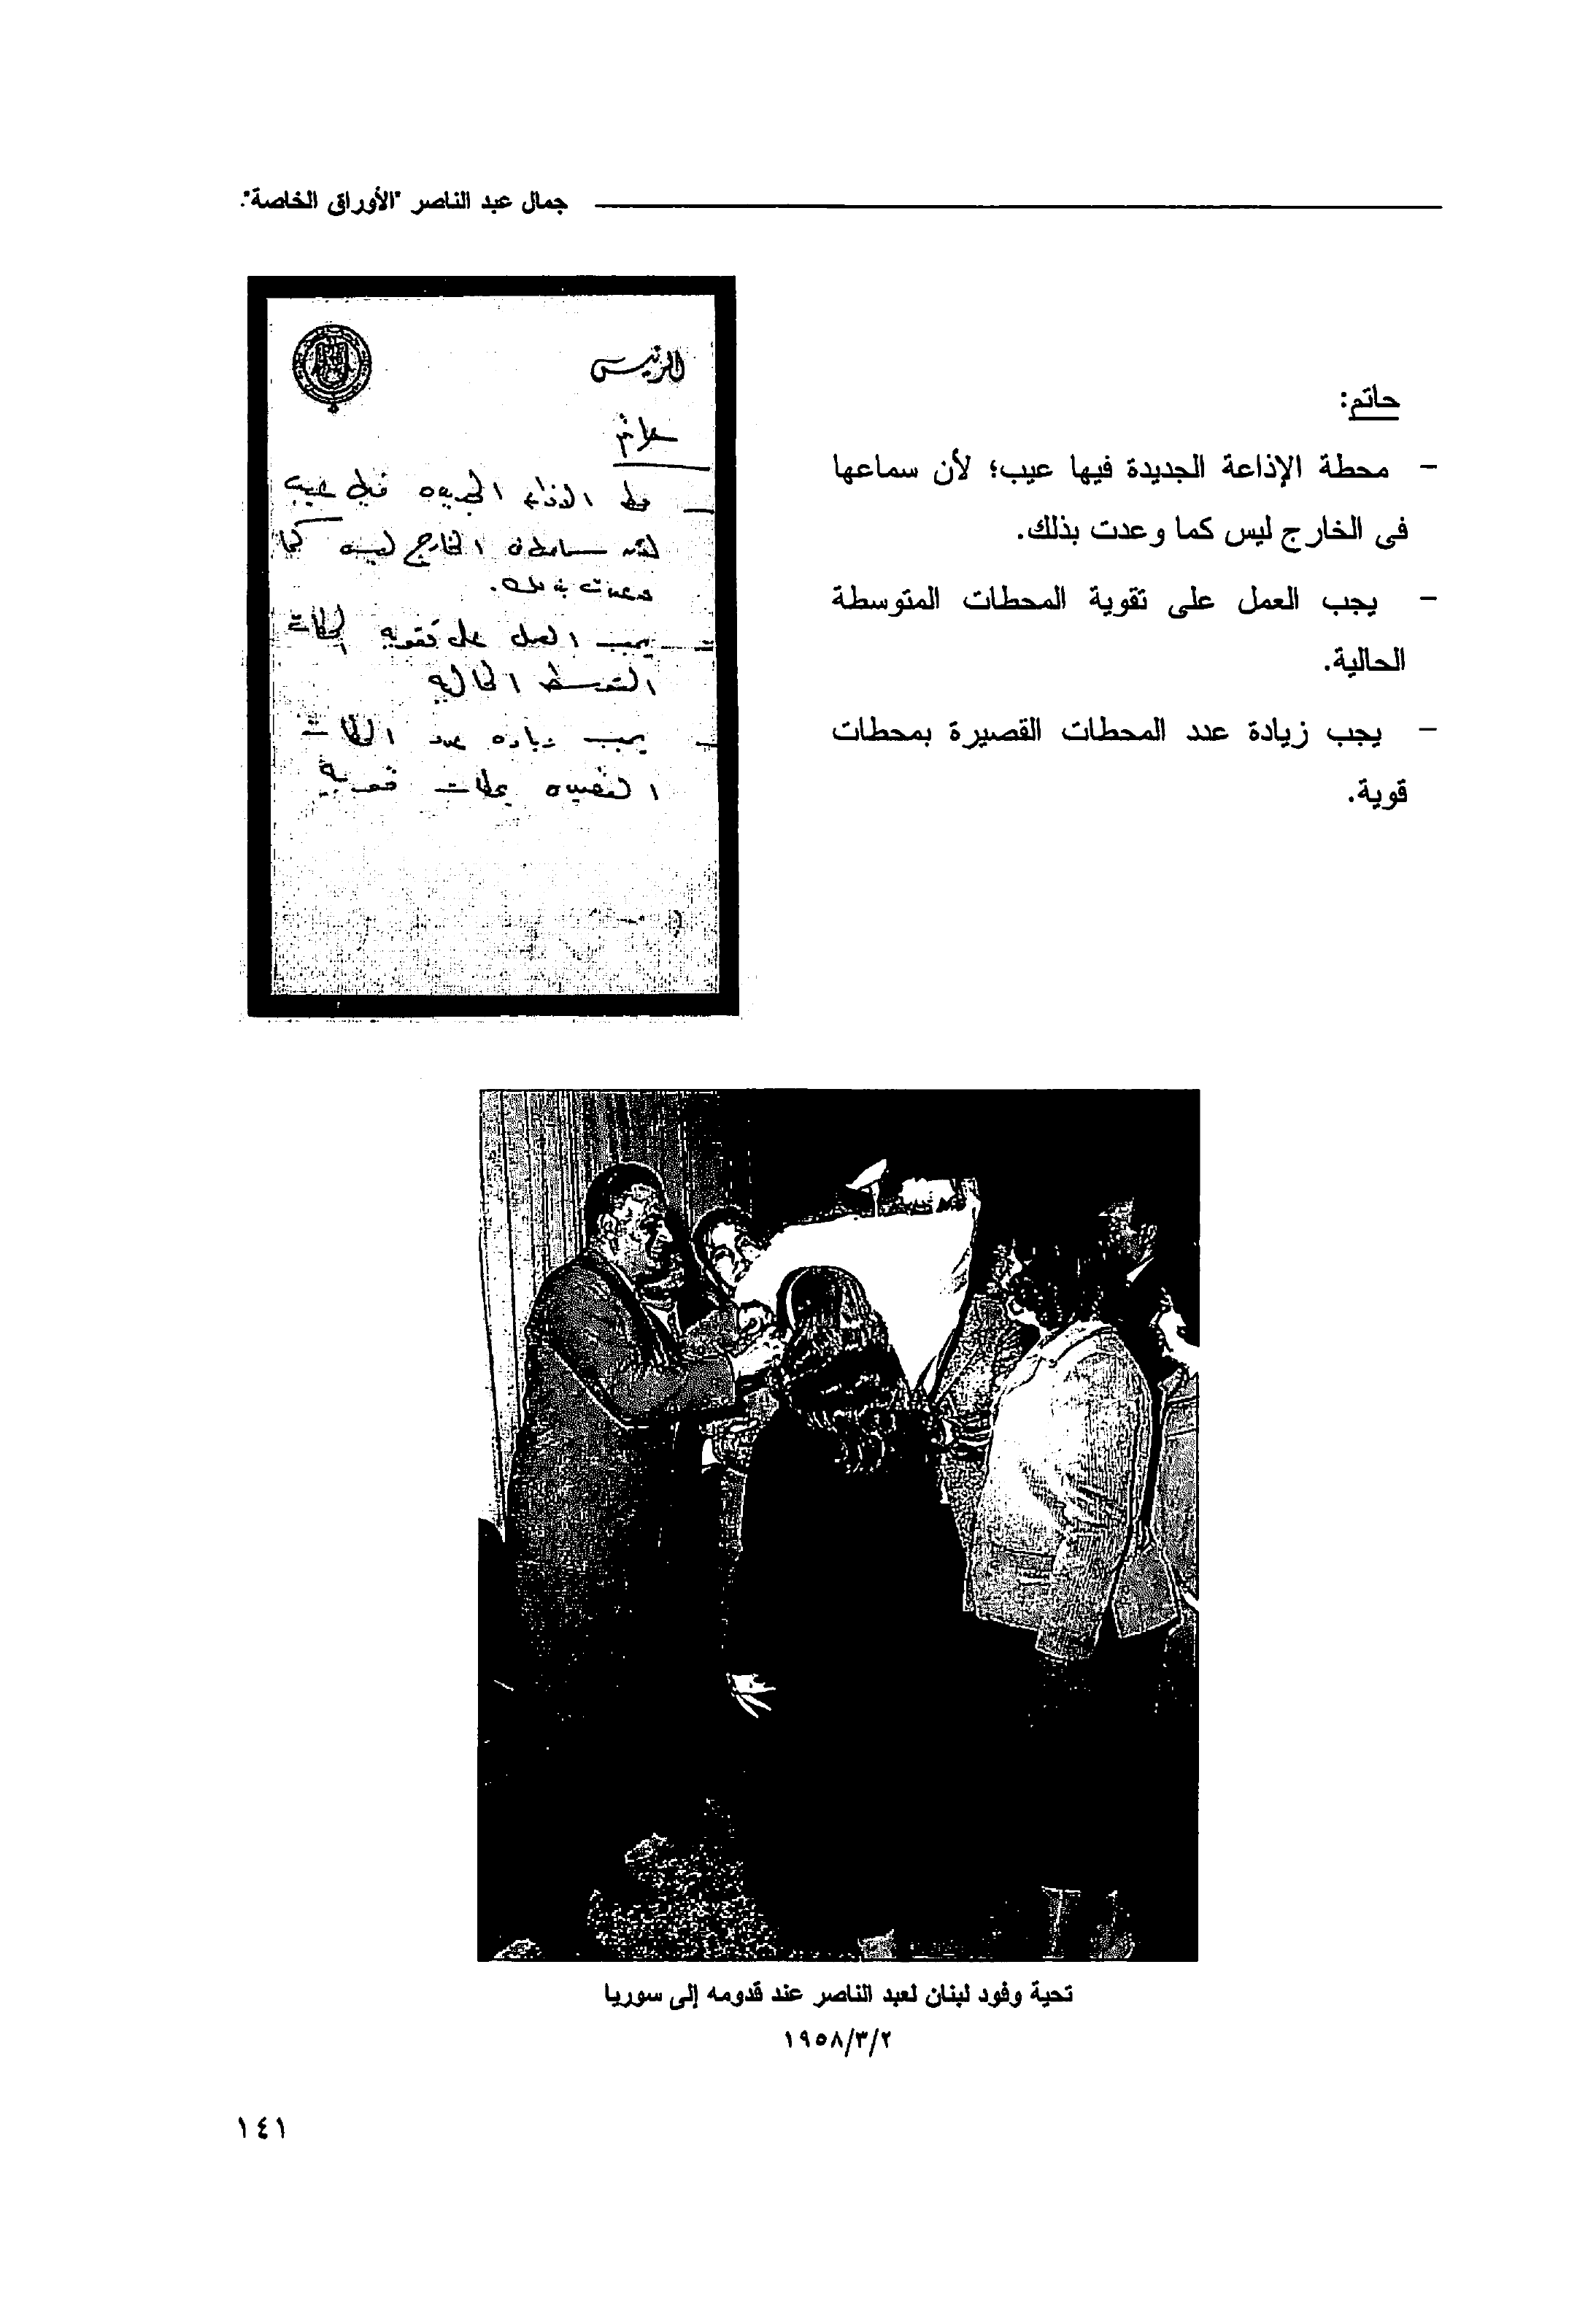 جمال عبد الناصر "الأوراق الخاصة".
حاتم:
- محطة الإذاعة الجديدة فيها عيب؛ لأن سماعها
فى الخارج ليس كما وعدت بذلك.
- يجب العمل على تقوية المحطات المتوسطة
الحالية.
- يجب زيادة عدد المحطات القصيرة بمحطات
قوية.
الرئيس
حاتم
- محطة الاذاعه الجديده فيها عيب
لأن سماعها فى الخارج ليس كما
وعدت بذلك.
- يجب العمل على تقويه المحطات
المتوسطه الحاليه
- يجب زياده عدد المحطات
القصيره بمحطات قويه
تحية وفود لبنان لعبد الناصر عند قدومه إلى سوريا
١٩٥٨/٣/٢
١٤١